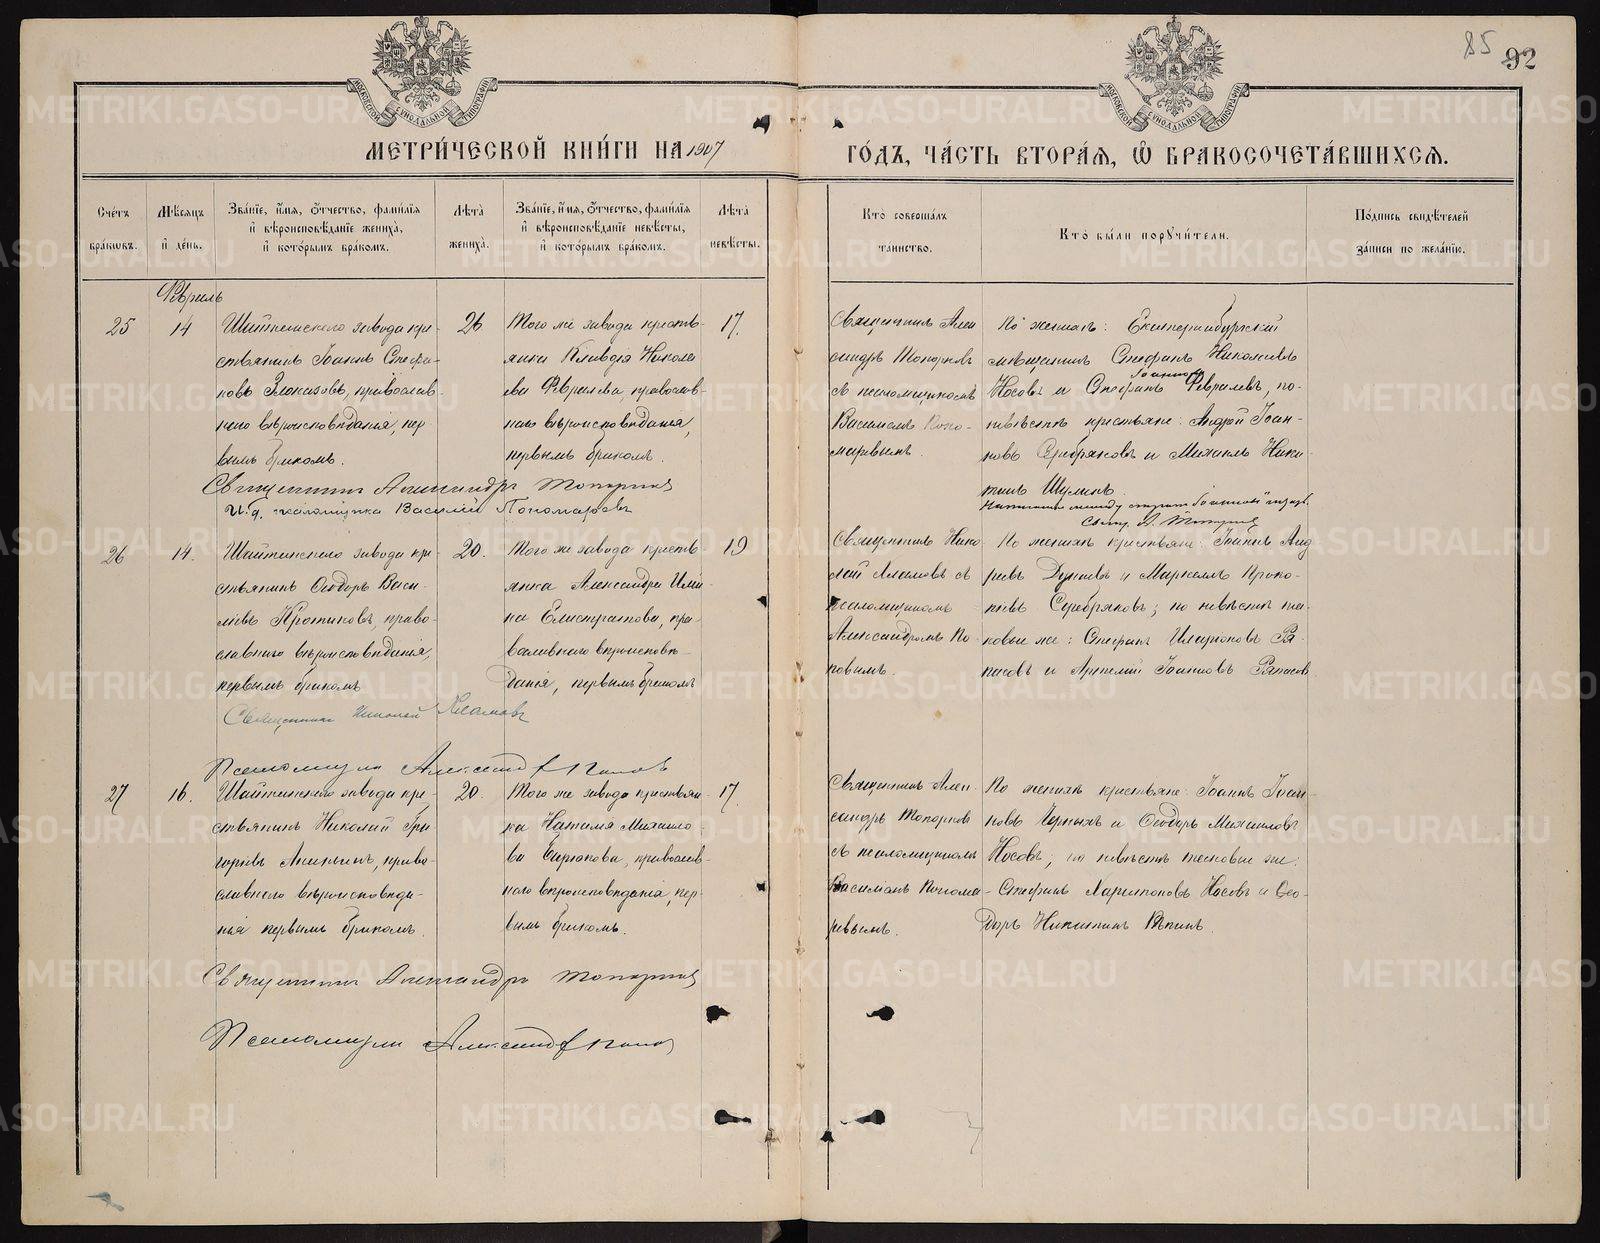 85 92
МОСКОВСКОЙ СѴНОДАЛЬНОЙ ТИПОГРАФІИ
МОСКОВСКОЙ СѴНОДАЛЬНОЙ ТИПОГРАФІИ
МЕТРИ́ЧЕСКОЙ КНИ́ГИ НА 1907 ГО́ДЪ, ЧА́СТЬ ВТОРА́Я, Ѽ БРАКОСОЧЕТА́ВШИХСЯ.
Сче́тъ бра́ковъ.
Мѣ́сяцъ и҆ де́нь.
Зва́нїе, и҆́мя, ѻ҆́тчество, фами́лїя
и҆ вѣроисповѣ́данїе жениха̀,
и҆ кото́рымъ бра́комъ.
Лѣ́та жениха̀.
Зва́нїе, и҆́мя, ѻ҆́тчество, фами́лїя
и҆ вѣроисповѣ́данїе невѣ́сты,
и҆ кото́рымъ бра́комъ.
Лѣ́та невѣ́сты.
Кто̀ соверша́лъ та́инство.
Кто̀ бы́ли порꙋчи́тели.
По́дпись свидѣ́телей за́писи по жела́нїю.
Апрѣль
25
14
Шайтанскаго завода кре-
стьянинъ Іоаннъ Стефа-
новъ Злоказовъ, православ-
наго вѣроисповѣданія, пер
вымъ бракомъ.
26
Того же завода кресть-
янка Клавдія Никола
ева Февралева, православ-
наго вѣроисповѣданія,
первымъ бракомъ.
17.
Священникъ Алек
сандръ Топорковъ
съ псаломщикомъ
Василіемъ Поно-
маревымъ.
По женихѣ: Екатеринбургскій
мѣщанинъ Стефанъ Николаевъ
Іоанновъ
Носовъ и Стефанъ Февралевъ, по
невѣстѣ крестьяне: Андрей Іоан-
новъ Серебряковъ и Михаилъ Ники-
тинъ Шулинъ.
Написанное между строкъ "Іоанновъ"
Свящ. А. Топорковъ
Священникъ Александръ Топорковъ
И. д. псаломщика Василій Пономаревъ
26
14.
Шайтанскаго завода кре-
стьянинъ Ѳеодоръ Васи-
льевъ Кротиковъ, право-
славнаго вѣроисповѣданія,
первымъ бракомъ
20.
Того же завода кресть-
янка Александра
Елистратова, пра-
вославнаго вѣроисповѣ-
данія, первымъ бракомъ
19
Священникъ Нико
лай Адамовъ съ
псаломщикомъ
Александромъ По-
повымъ.
По женихѣ крестьяне: Іоаннъ Анд
реевъ Дунаевъ и Маркеллъ Проко-
пьевъ Серебряковъ; по невѣстѣ та-
ковые же: Стефанъ Иларіоновъ
и Іоанновъ
Священникъ Николай Адамовъ
Псаломщикъ Александръ Поповъ
27
16.
Шайтанскаго завода кре-
стьянинъ Николай Гри
горьевъ Ананьинъ, право-
славнаго вѣроисповѣда-
нія первымъ бракомъ.
20.
Того же завода крестьян-
ка Наталія Михаило
ва Бирюкова, православ-
наго вѣроисповѣданія, пер-
вымъ бракомъ.
17.
Священникъ Алек
сандръ Топорковъ
съ псаломщикомъ
Василіемъ Понома-
ревымъ.
По женихѣ крестьяне: Іоаннъ Іоан-
новъ Черныхъ и Ѳеодоръ Михаиловъ
Носовъ; по невѣстѣ таковые же:
Стефанъ Ларіоновъ Носовъ и Ѳео-
доръ Никитинъ Рѣпинъ.
Священникъ Александръ Топорковъ
Псаломщикъ Александръ Поповъ
METRIKI.GASO-URAL.RU